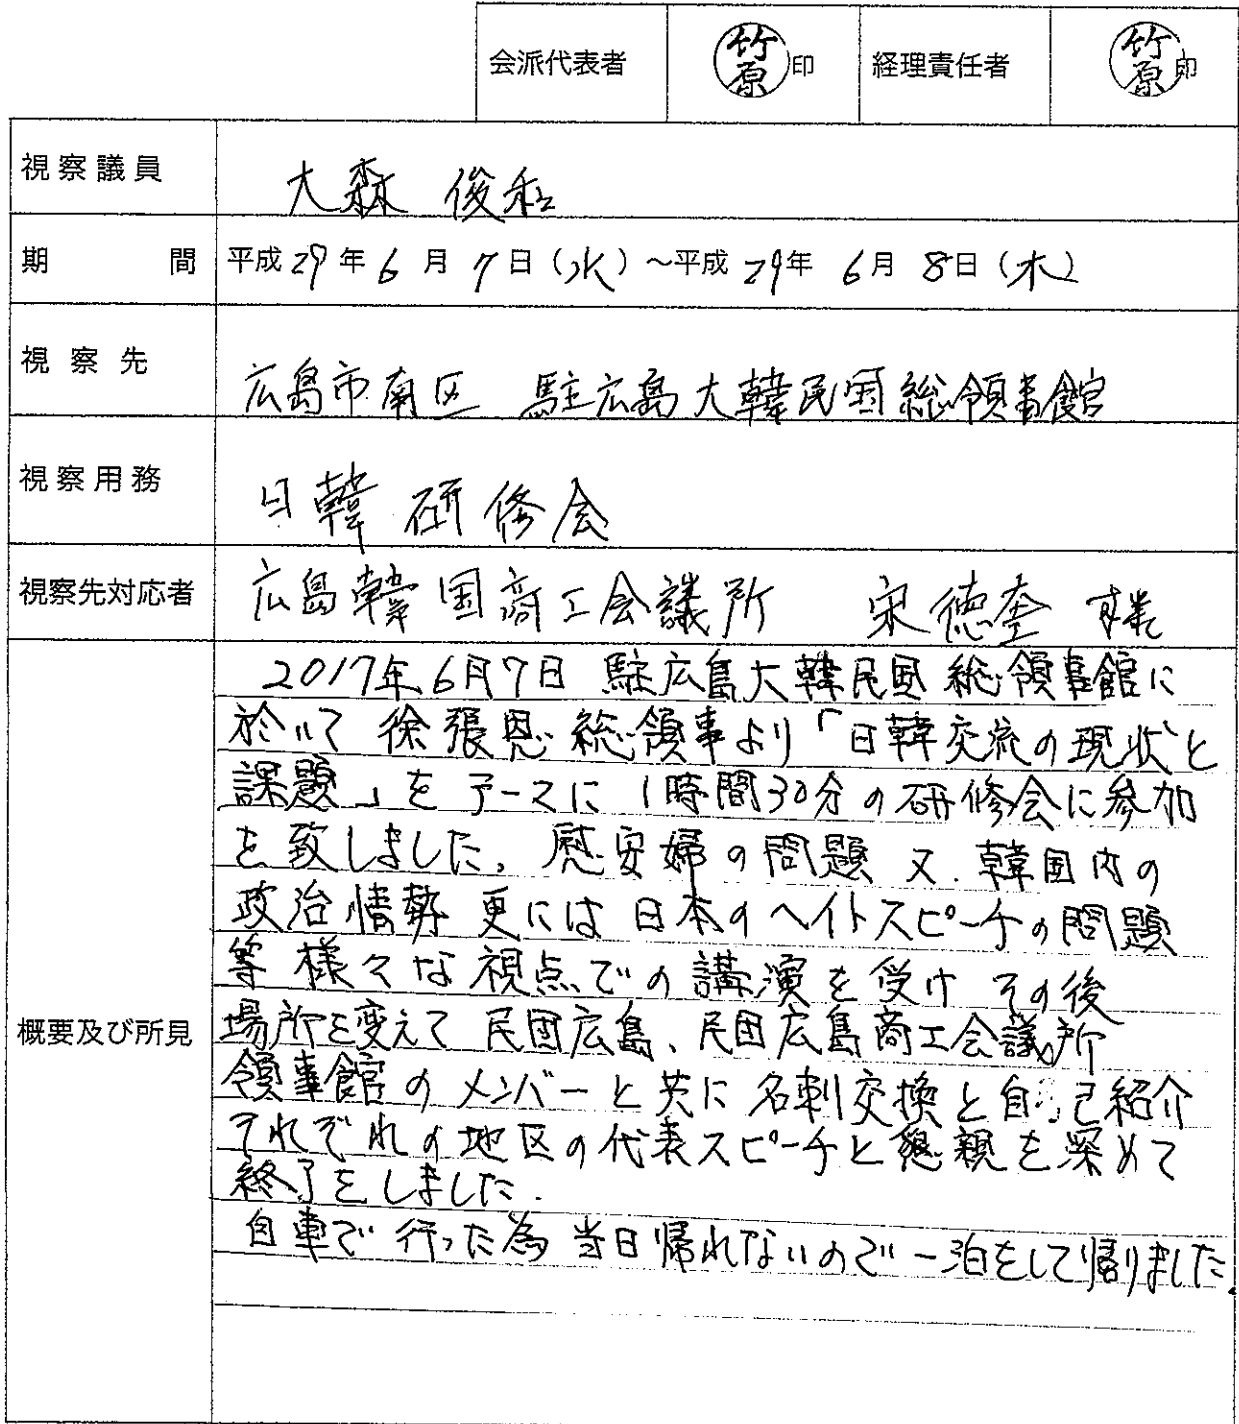 会派代表者 竹原 印 経理責任者 竹原 印
視察議員 大森 俊和
期 間 平成29年6月7日(水)~平成29年6月8日(木)
視察先 広島市南区 駐広島大韓民国総領事館
視察用務 日韓研修会
視察先対応者 広島韓国商工会議所 宋徳奎 様
概要及び所見
2017年6月7日 駐広島大韓民国 総領事館に
於いて 徐張恩 総領事より「日韓交流の現状と
課題」をテーマに 1時間30分の研修会に参加
を致しました。慰安婦の問題 又、韓国内の
政治情勢 更には 日本のヘイトスピーチの問題
等 様々な視点での講演を受け その後
場所を変えて 民団広島、民団広島商工会議所
領事館のメンバーと共に名刺交換と自己紹介
それぞれの地区の代表スピーチと懇親を深めて
終了をしました.
自車で行った為 当日帰れないので一泊をして帰りました.